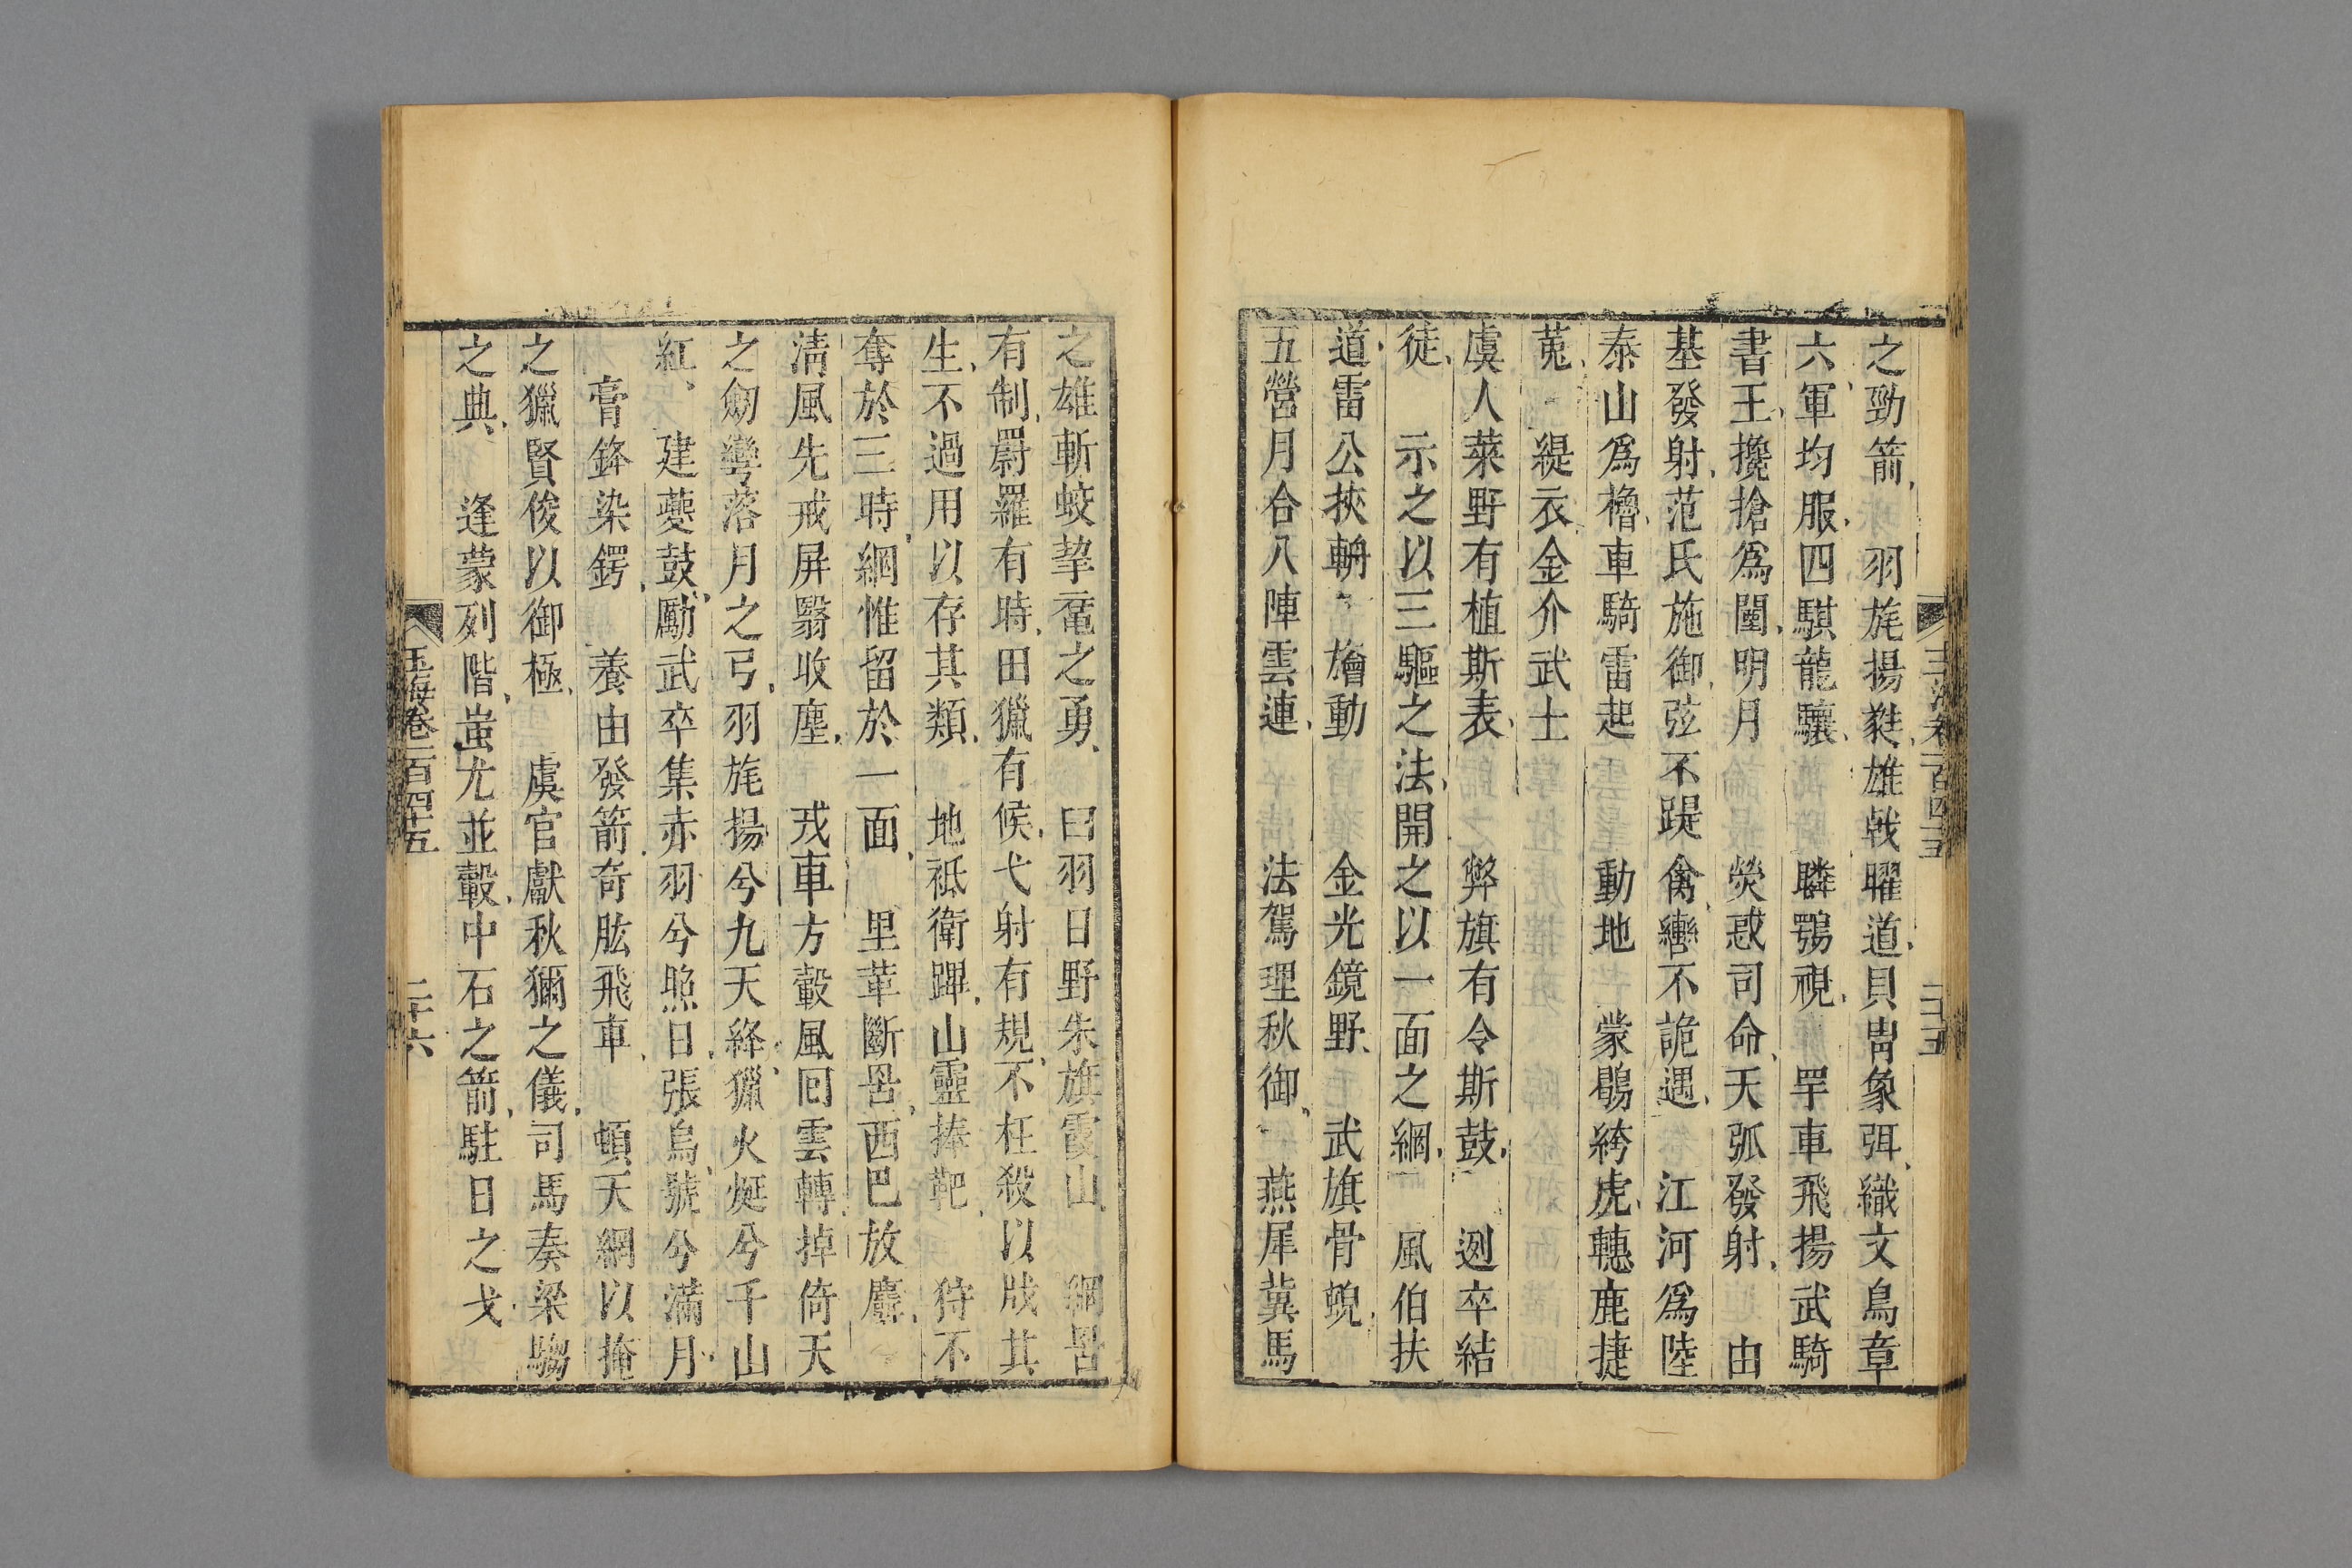 之勁箭　羽旄揚毿雄戟曜道貝胄象弭織文鳥章
六軍均服四騏龍驤　瞵鶚視　罕車飛揚武騎
書王攙搶為闉明月　熒惑司命天弧發射　由
基發射范氏施御弦不踶禽轡不詭遇　江河為陸
泰山為櫓車騎雷起　動地　蒙鶡絝虎轊鹿捷
菟　緹衣金介武士
虞人萊野有植斯表　弊旗有令斯鼓　迾卒結
徒　示之以三驅之法開之以一面之網　風伯扶
道雷公挾輈　旝動　金光鏡野　武旗骨蜺
五營月合八陣雲連　法駕理秋御　燕犀冀馬
玉海卷一百四十五　二十五
之雄斬蛟挚黿之勇　曰羽日野朱旗霞山　網罟
有制罻羅有時田獵有候弋射有規不枉殺以戕其
生不過用以存其類　地祇衛蹕山靈捧靶　狩不
奪於三時網惟留於一面　里革斷罟西巴放麑
清風先戒屏翳收塵　戎車方轂風回雲轉掉倚天
之劒彎落月之弓羽旄揚兮九天絳獵火烻兮千山
紅　建虁鼓勵武卒集赤羽兮照日張烏號兮滿月
膏鋒染鍔　養由發箭奇肱飛車　頓天網以掩
之獵賢俊以御極　虞官獻秋獮之儀司馬奏梁騶
之典　逢蒙列階蚩尤並轂中石之箭駐日之戈
玉海卷一百四十五　二十六